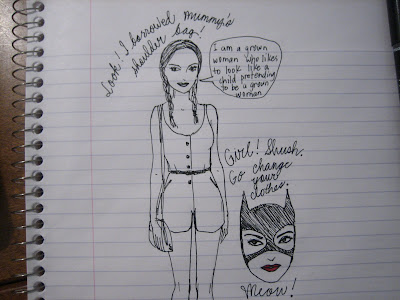 Look! I borrowed Mummy's
shoulder bag!
I am a grown
woman who likes
to look like a
child pretending
to be a grown
woman
Girl! Shush.
Go change
your
clothes.
Meow!